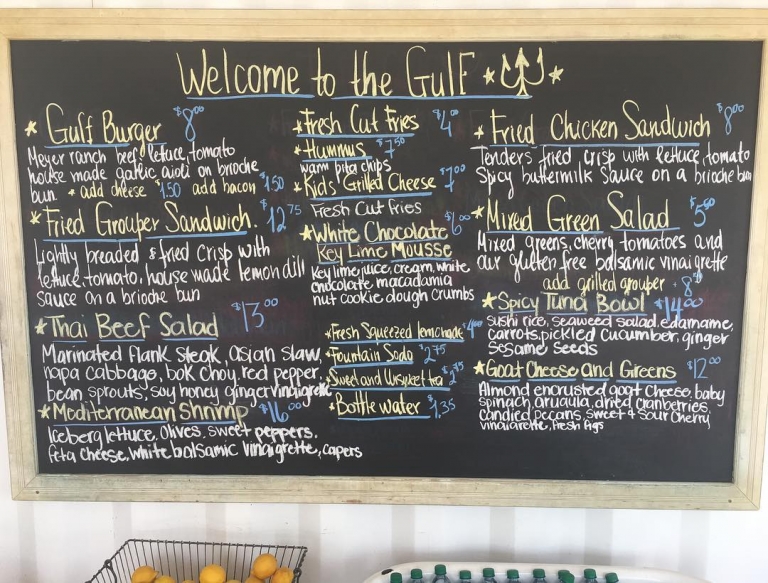 Welcome to the Gulf
Gulf Burger $8.00
Meyer ranch beef, lettuce, tomato
house made garlic aioli on brioche
bun * add cheese $1.50 add bacon $1.50
Fried Grouper Sandwich. $12.75
Lightly breaded & fried crisp with
lettuce, tomato, house made lemon dill
sauce on a brioche bun
Thai Beef Salad $13.00
Marinated flank steak, asian slaw,
napa cabbage, bok choy, red pepper,
bean sprouts, soy honey ginger vinaigrette
Mediterranean Shrimp $16.00
Iceberg lettuce, olives, sweet peppers,
feta cheese, white balsamic vinaigrette, capers
Fresh Cut Fries $4.00
Hummus $7.50
warm pita chips
Kids' Grilled Cheese $7.00
Fresh Cut Fries
White Chocolate $6.00
Key Lime Mousse
Key lime juice, cream, white
chocolate macadamia
nut cookie dough crumbs
Fresh Squeezed lemonade $4.00
Fountain Soda $2.75
Sweet and Unsweet tea $2.75
Bottle water $1.35
Fried Chicken Sandwich $8.00
Tenders fried crisp with lettuce, tomato
Spicy buttermilk sauce on a brioche bun
Mixed Green Salad $5.50
Mixed greens, cherry tomatoes and
our gluten free balsamic vinaigrette
add grilled grouper + 8.00
Spicy Tuna Bowl $14.00
sushi rice, seaweed salad, edamame,
carrots, pickled cucumber, ginger
sesame seeds
Goat Cheese and Greens $12.00
Almond encrusted goat cheese, baby
spinach, arugula, dried cranberries,
candied pecans, sweet & sour cherry
vinaigrette, fresh figs